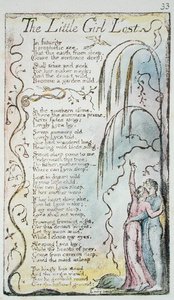 33
The Little Girl Lost
In futurity
I prophetic see,
That the earth from sleep,
(Grave the sentence deep)
Shall arise and seek
For her maker meek:
And the desart wild
Become a garden mild.
In the southern clime,
Where the summers prime,
Never fades away;
Lovely Lyca lay.
Seven summers old
Lovely Lyca told,
She had wanderd long,
Hearing wild birds song.
Sweet sleep come to me
Underneath this tree;
Do father, mother weep,
Where can Lyca sleep.
Lost in desart wild
Is your little child.
How can Lyca sleep,
If her mother weep.
If her heart does ake,
Then let Lyca wake;
If my mother sleep,
Lyca shall not weep.
Frowning frowning night,
O'er this desart bright,
Let thy moon arise,
While I close my eyes.
Sleeping Lyca lay;
While the beasts of prey,
Come from caverns deep,
View'd the maid asleep
The kingly lion stood
And the virgin view'd,
Then he gambold round
O'er the hallowd ground: